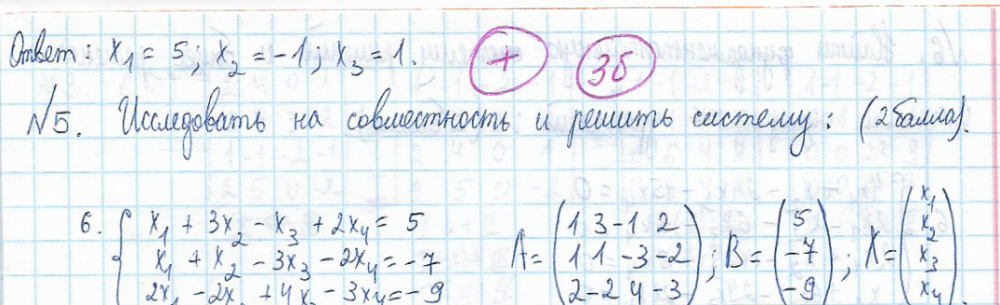 Ответ: x₁ = 5; x₂ = -1; x₃ = 1. + 3б
№5. Исследовать на совместность и решить систему: (2 балла).
6. { x₁ + 3x₂ - x₃ + 2x₄ = 5
x₁ + x₂ - 3x₃ - 2x₄ = -7
2x₁ - 2x₂ + 4x₃ - 3x₄ = -9
A = (1 3 -1 2
1 1 -3 -2
2 -2 4 -3); B = (5
-7
-9); X = (x₁
x₂
x₃
x₄)